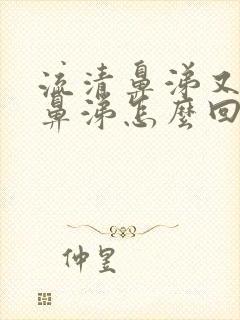 流清鼻涕又
鼻涕怎麼回
仲昱